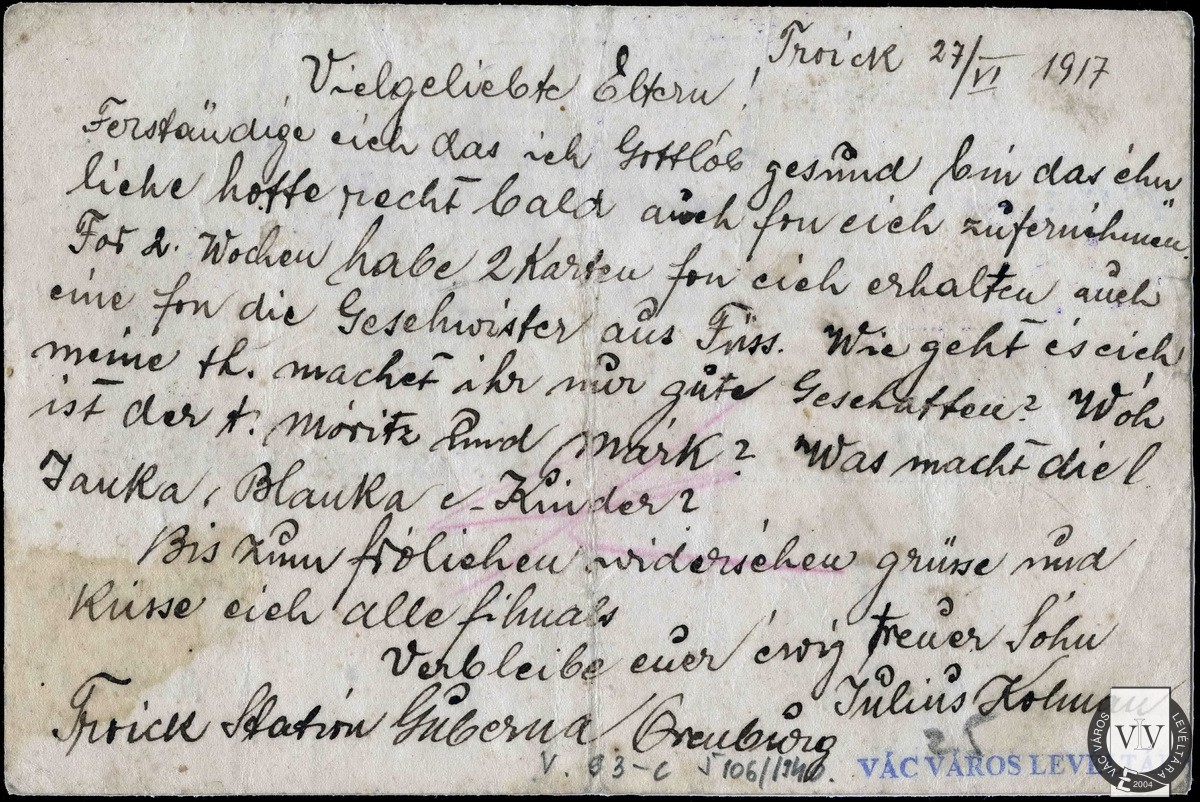 Troick 27/VI 1917
Vielgeliebte Eltern!
Ferständige eich das ich Gottlób gesund bin das ehn
liche hoffe recht bald auch fon eich zufernehmen.
For 2. Wochen habe 2 Karten fon eich erhalten auch
eine fon die Geschwister aus Füss. Wie geht es eich
meine th. machet ihr nur gute Geschäften? Woh
ist der t. Móritz und Márk? Was macht die l.
Janka, Blanka Kinder?
Bis zum frölichen widersehen grüsse und
Küsse eich alle filmals
Verbleibe euer ewig treuer Sohn
Julius Kolman
Troick Station Guberna Orenburg
V. 83-c 5106/1940.
25
VÁC VÁROS LEVÉLTÁRA
VÁC VÁROS LEVÉLTÁRA
VLV
2004